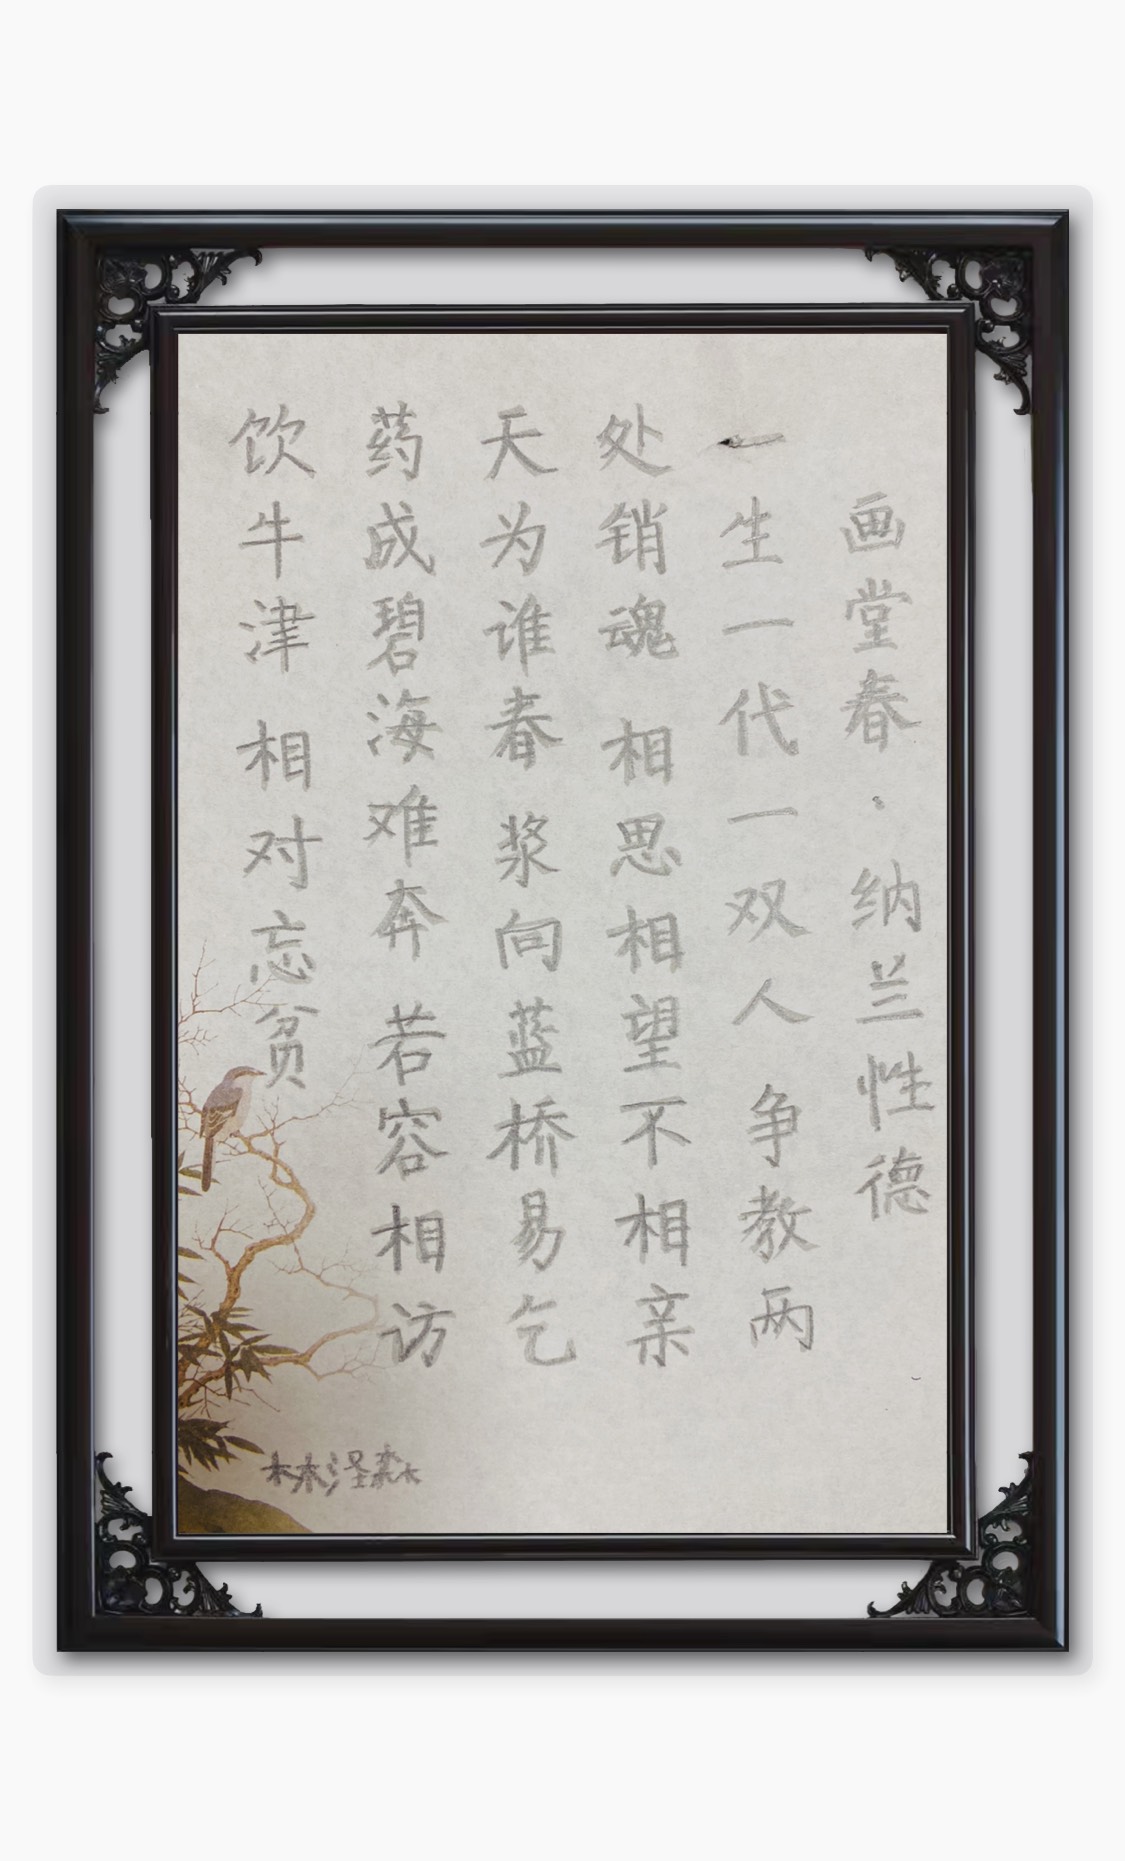 画堂春·纳兰性德
一生一代一双人 争教两
处销魂 相思相望不相亲
天为谁春 浆向蓝桥易乞
药成碧海难奔 若容相访
饮牛津 相对忘贫
林泽淼